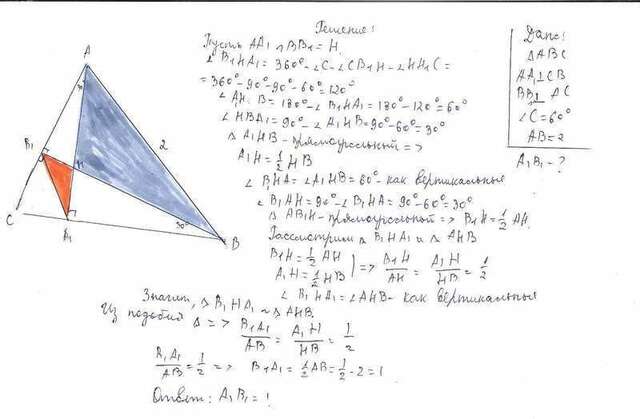 Решение:
Пусть AA₁ ∩ BB₁ = H.
∠B₁HA₁ = 360° - ∠C - ∠CB₁H - ∠HA₁C =
= 360° - 90° - 90° - 60° = 120°
∠AH B = 180° - ∠B₁HA₁ = 180° - 120° = 60°
∠HBA₁ = 90° - ∠A₁HB = 90° - 60° = 30°
△A₁HB - прямоугольный =>
A₁H = ½ HB
∠B₁HA = ∠A₁HB = 60° - как вертикальные
∠B₁AH = 90° - ∠B₁HA = 90° - 60° = 30°
△AB₁H - прямоугольный => B₁H = ½ AH.
Рассмотрим △B₁HA₁ и △AHB
B₁H = ½ AH
A₁H = ½ HB
=> B₁H/AH = A₁H/HB = 1/2
∠B₁HA₁ = ∠AHB - как вертикальные
Значит, △B₁HA₁ ~ △AHB.
Из подобия △ => B₁A₁/AB = A₁H/HB = 1/2
B₁A₁/AB = 1/2 => B₁A₁ = ½ AB = ½ · 2 = 1
Ответ: A₁B₁ = 1
Дано:
△ABC
AA₁⊥CB
BB₁⊥AC
∠C = 60°
AB = 2
A₁B₁ - ?
A
B₁
H
2
C
A₁
30°
B